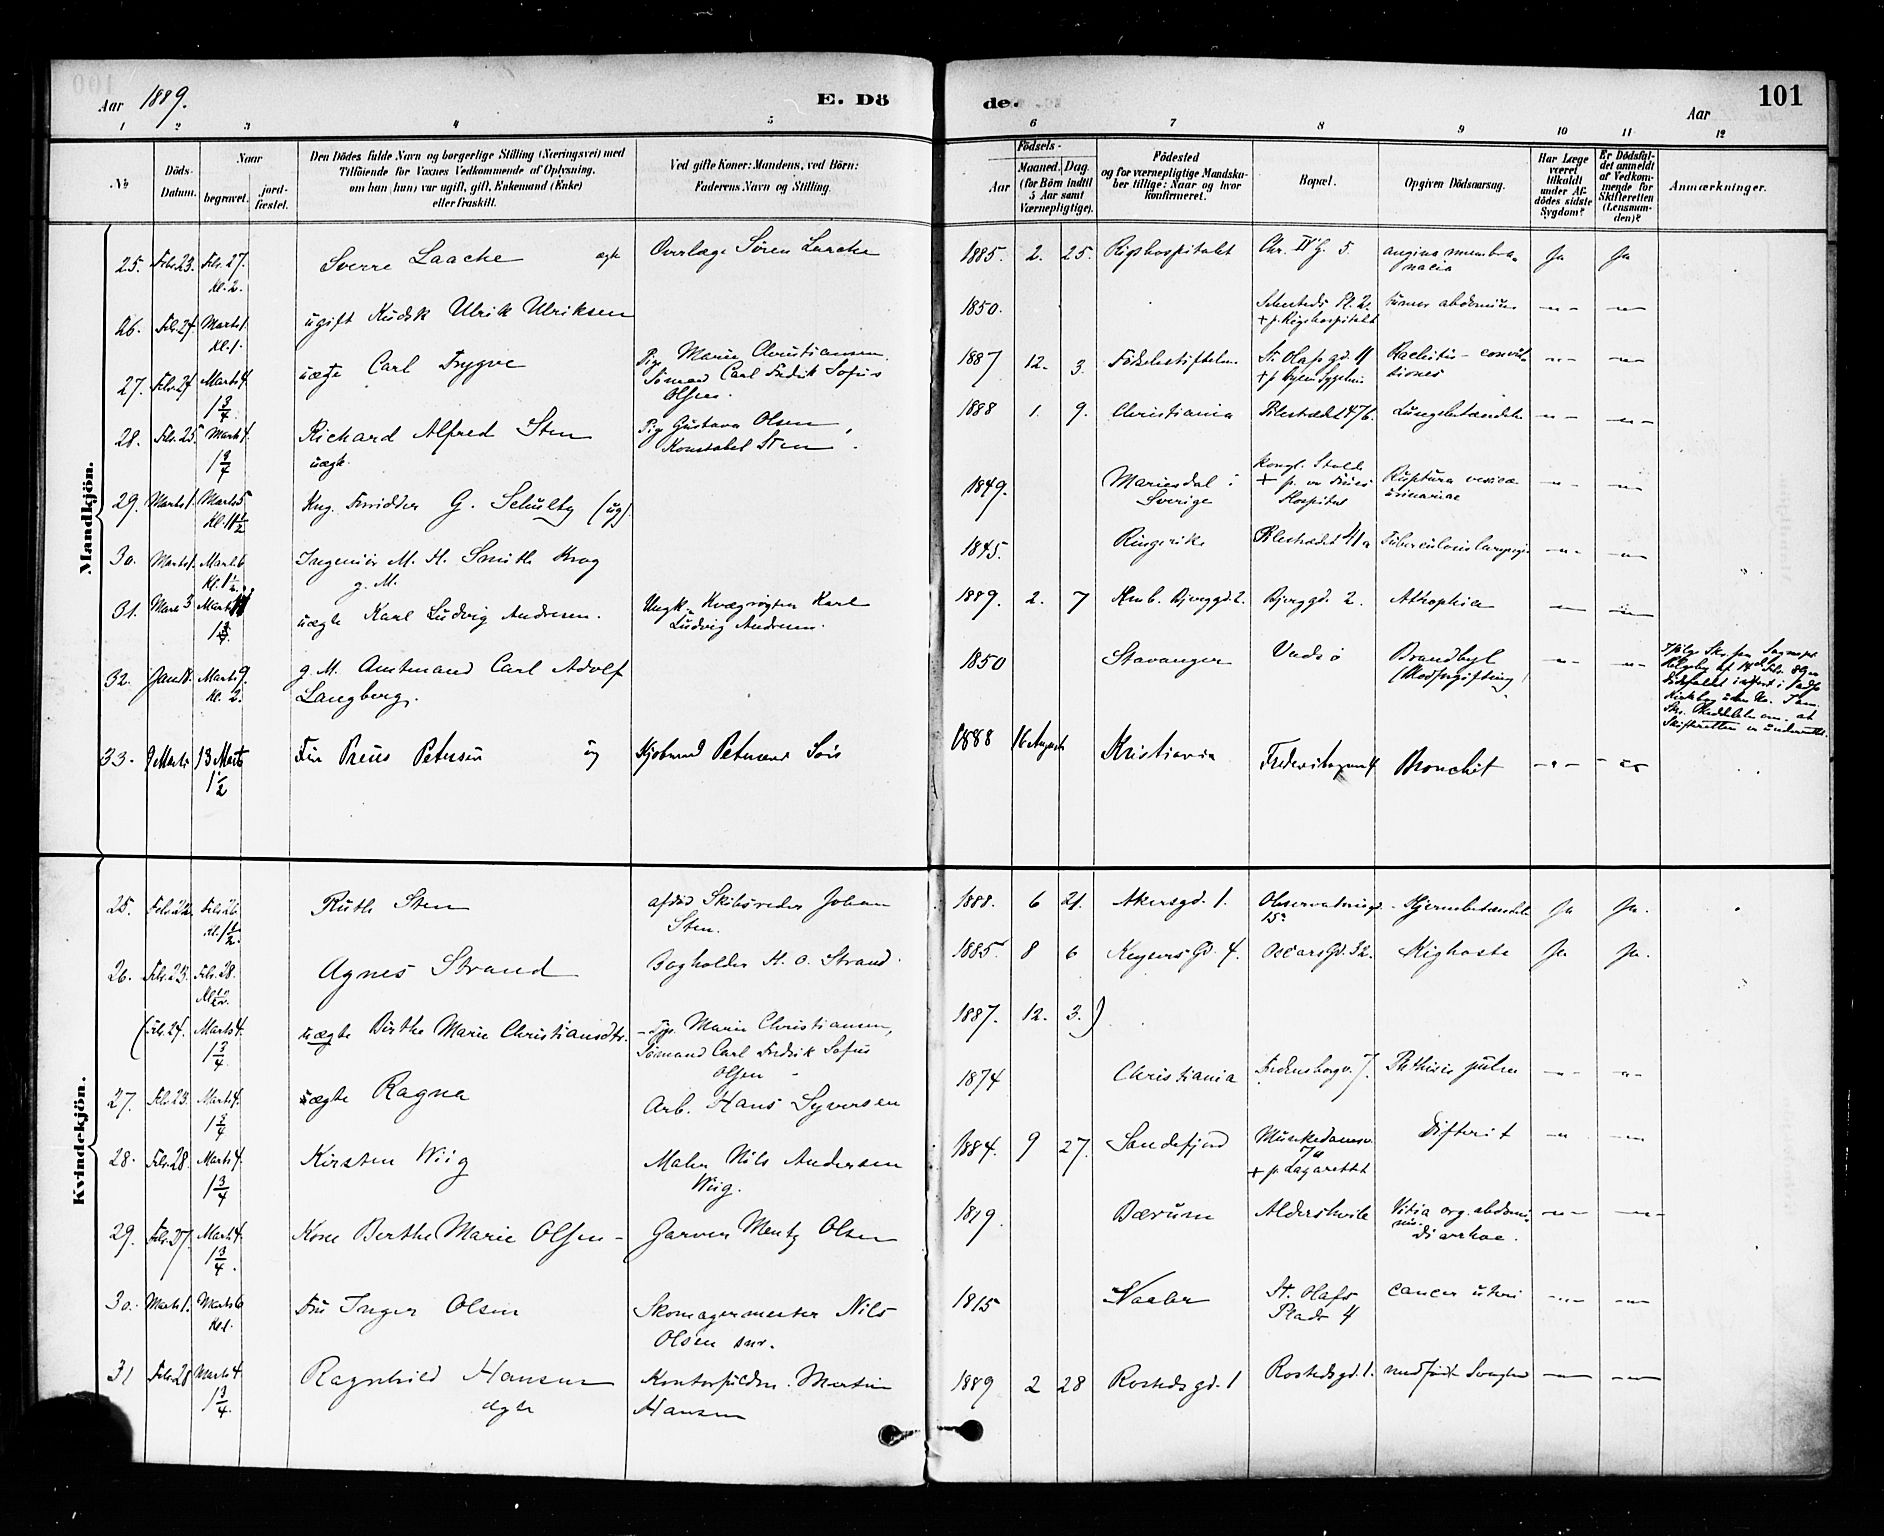 Aar 1889.
E. Dö
de.
Aar
101
1 2 3 4 5 6 7 8 9 10 11 12
No
Döds-
Datum.
Naar
begravet.
jord-
fæstet.
Den Dödes fulde Navn og borgerlige Stilling (Næringsvei) med
Tilföiende for Voxnes Vedkommende af Oplysning,
om han (hun) var ugift, gift, Enkemand (Enke)
eller fraskilt.
Ved gifte Koner: Mandens, ved Börn:
Faderens Navn og Stilling.
Födsels-
Aar
Maaned. Dag.
(for Börn indtil
5 Aar samt
Værnepligtige).
Födested
og for værnepligtige Mandska-
ber tillige: Naar og hvor
konfirmeret.
Bopæl.
Opgiven Dödsaarsag.
Har Læge
været
tilkaldt
under Af-
dödes sidste
Sygdom?
Er Dödsfal-
det anmeldt
af Vedkom-
mende for
Skifteretten
(Lensman-
den)?
Anmærkninger.
Mandkjön.
25. Febr. 23. Febr. 27. Kl. 2. Sverre Laache ægte Overlæge Sören Laache 1885. 2. 25. Rigshospitalet Chr. IV G. 5 angina membra-
nacia Ja Ja
26. Febr. 24. Marts 1. Kl. 1. ugift Kudsk Ulrik Ulriksen 1850. Sehesteds Pl. 2.
+ p. Rigshospitalet tumor abdominis -"- -"-
27. Febr. 24 Marts 4. 1 3/4 uægte Carl Trygve Pige Marie Christiansen,
Sömand Carl Fredrik Sofus
Olsen. 1887 12. 3. Födselsstiftelsen St. Olafs gd. 11 Rachitis - convul-
tiones -"- -"-
28. Febr. 25. Marts 4. 1 3/4 Richard Alfred Sten
uægte. Pige Gustava Olsen,
Konstabel Sten. 1888 1. 9. Christiania Pilestrædet 47b. Lungebetændelse -"- -"-
29. Marts 1. Marts 5 Kl. 11 1/2 G. Schultz (ug.) 1849. Mariesdal i
Sverige Kongl. Stald
+ p. vor Frues
Hospital Ruptura vesicæ
urinariae -"- -"-
30. Marts 1. Marts 6 Kl. 1 1/2 Ingeniör M. H. Smith Krog
g. M. 1845. Ringerike Pilestrædet 41a Tuberculosis laryngis -"- -"-
31. Marts 3 Marts 1 3/4 uægte Karl Ludvig Andresen. Ungk. Kvægrögter Karl
Ludvig Andresen. 1889. 2. 7 Kmb. Bjerggd. 2. Bjerggd. 2. Atrophia -"- -"-
32. Jan. 8. Marts 9. Kl. 2. g. M. Amtmand Carl Adolf
Langberg. 1850 Stavanger Vadsö Brandbyl
(Blodforgiftning) -"- -"-
33. 9 Marts 13 Marts 1 1/2 Preus Petersen Petersens Sön 1888 16 August Kristiania Bronchit -"- -"-
Kvindekjön.
25. Febr. 22. Febr. 26 Kl. 1 1/2. Ruth Sten afdöd Skibsreder Johan
Sten. 1888. 6 21. Akersgd. 1. Observatoriegd.
15 Hjernebetændelse Ja Ja.
26. Febr. 23. Febr. 28. Agnes Strand Bogholder H. O. Strand. 1885. 8 6 Keysers Gd. 4. Oscars Gd. 32. Kighoste Ja Ja.
(Febr. 24. Marts 4. 1 3/4 uægte Birthe Marie Christiansdtr. - Pige Marie Christiansen,
Sömand Carl Fredrik Sofus
Olsen - 1887. 12. 3.)
27. Febr. 23. Marts 4. 1 3/4 uægte Ragna Arb. Hans Syversen 1874 Christiania Fredensborgv. 7. Phthisis pulm -"- -"-
28. Febr. 28. Marts 4. 1 3/4 Kirsten Wiig Maler Nils Andersen
Wiig. 1884. 9 27. Sandefjord Munkedamsv.
7a
+ p. Lazarettet Difterit -"- -"-
29. Febr. 27. Marts 4. 1 3/4. Kone Berthe Marie Olsen - Garver Mentz Olsen 1819. Bærum Aldershvile Vitia org. abdomi-
nis
Diarrhoe. -"- -"-
30. Marts 1. Marts 6 Kl. 1 Fru Inger Olsen Skomagermester Nils
Olsen snr. 1815 St. Olafs
Plads 4 cancer uteri -"- -"-
31 Febr. 28 Marts 4 1 3/4. Ragnhild Hansen
ægte Martin
Hansen 1889 2 28 Rostedsgd. 1 Rostedsgd. 1. medfödt Svaghed -"- -"-